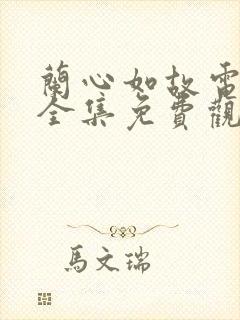 蘭心如故電
全集免費觀
馬文瑞